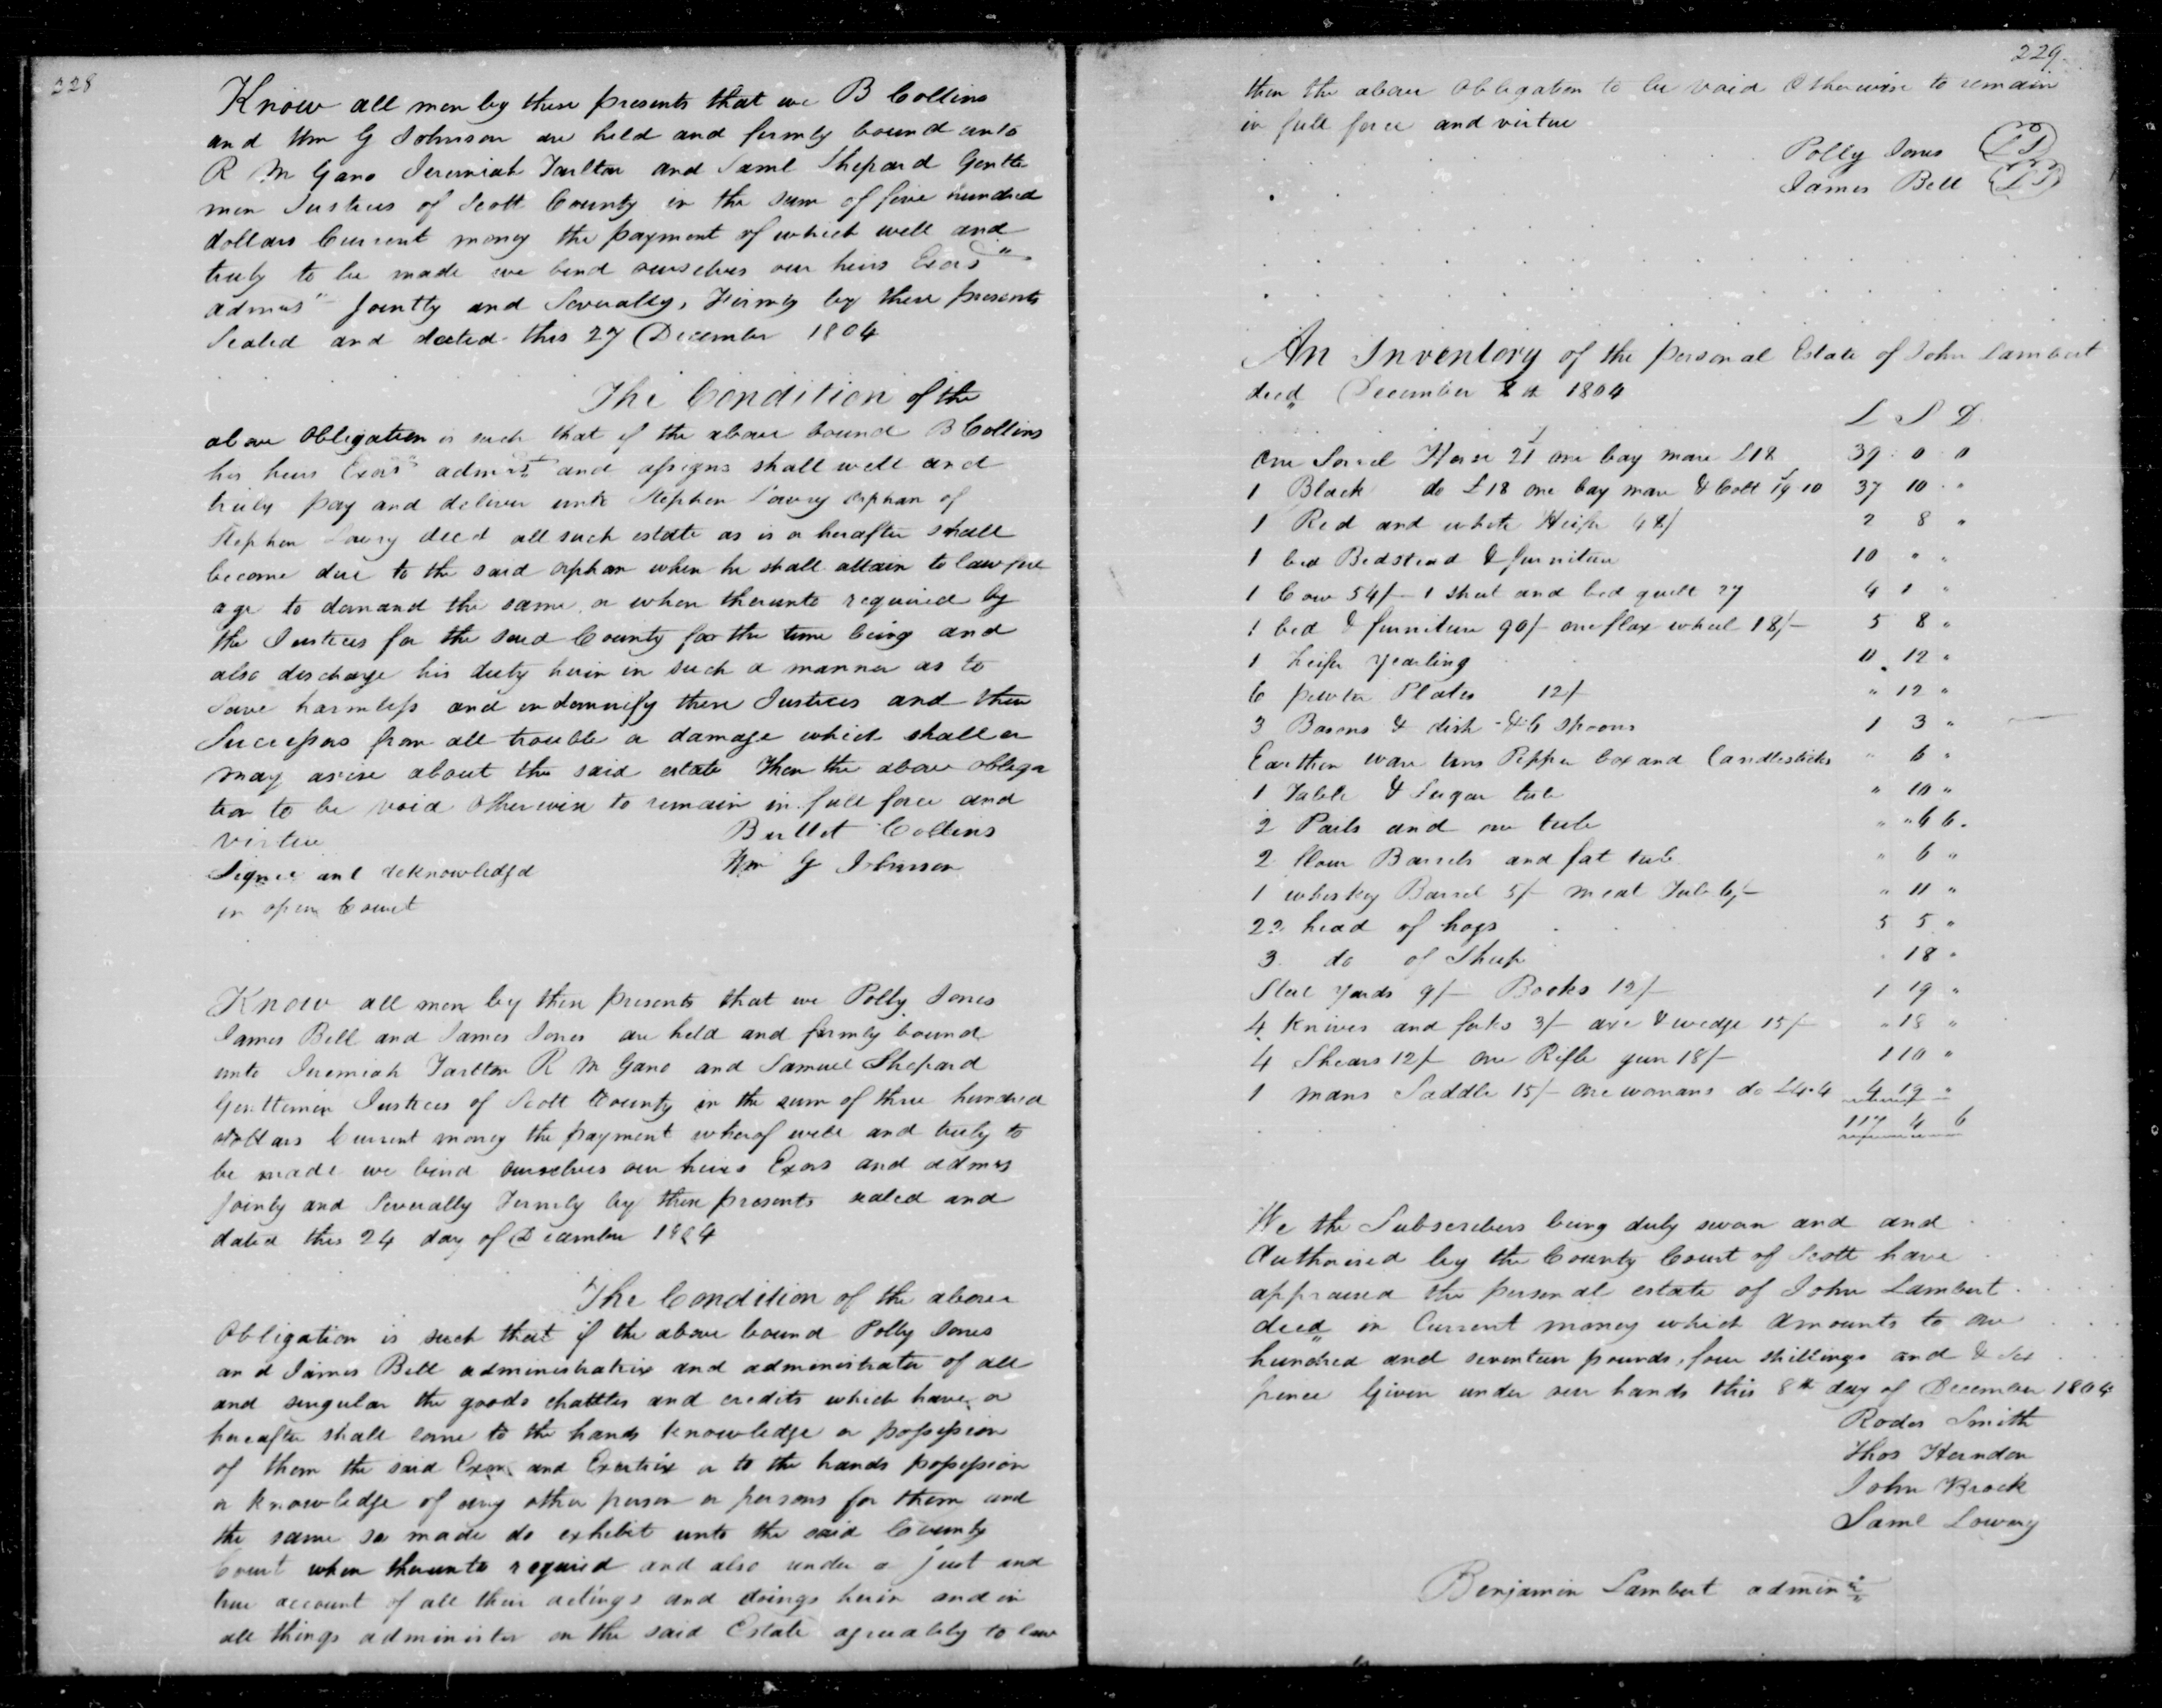 228
Know all men by these presents that we B Collins
and Wm G Johnson are held and firmly bound unto
R M Gano Jeremiah Tarlton and Saml Shepard Gentle
men Justices of Scott County in the sum of five hundred
dollars Current money the payment of which well and
truly to be made we bind ourselves our heirs Exors
admrs Jointly and Severally, Firmly by these presents
Sealed and dated this 27 December 1804
The Condition of the
above Obligation is such that if the above bound B Collins
his heirs Exors admrs and assigns shall well and
truly pay and deliver unto Stephen Lowry orphan of
Stephen Lowry decd all such estate as is or herafter shall
become due to the said orphan when he shall attain to lawful
age to demand the same or when therunto required by
the Justices for the said County for the time being and
also discharge his duty herin in such a manner as to
Save harmless and indemnify these Justices and their
Successors from all trouble or damage which shall or
may arise about the said estate Then the above obliga
tion to be void otherwise to remain in full force and
virtue
Bullet Collins
Wm G Johnson
Signed and acknowledgd
in open Court
Know all men by these presents that we Polly Jones
James Bell and James Jones are held and firmly bound
unto Jeremiah Tarlton R M Gano and Samuel Shepard
Genttemen Justices of Scott County in the sum of three hundred
dollars Current money the payment wherof well and truly to
be made we bind ourselves our heirs Exors and admrs
Joinly and Severally Firmly by these presents sealed and
dated this 24 day of December 1804
The Condition of the above
Obligation is such that if the above bound Polly Jones
and James Bell administratrix and administrator of all
and singular the goods chattles and credits which have or
hereafter shall come to the hands knowledge or possession
of them the said Exors and Exectrix or to the hands possession
or knowledge of any other person or persons for them and
the same so made do exhibit unto the said County
Court when therunto required and also render a just and
true account of all their actings and doings herin and in
all things administer on the said Estate agreeably to law
229
then the above Obligation to be void Otherwise to remain
in full force and virtue
Polly Jones
James Bell
An Inventory of the personal Estate of John Lambert
decd December 8th 1804
L S D
One Sorrel Horse 21 one bay mare £18 39 0 0
1 Black do £18 one bay mare & Colt 19 10 37 10 "
1 Red and white Heifer 48/ 2 8 "
1 bed Bedstead & furniture 10 " "
1 Cow 54/- 1 sheet and bed quilt 27 4 1 "
1 bed & furniture 90/- one flax wheel 18/- 5 8 "
1 heifer yearling 0 12 "
6 pewter Plates 12/- " 12 "
3 Basons & dish & 6 spoons 1 3 "
Earthen ware tins Pepper box and Candlesticks " 6 "
1 Table & Sugar tub " 10 "
2 Pails and one tub " " 6 6
2 flour Barrels and fat tub " 6 "
1 whiskey Barrel 5/- meat Tub 6/- " 11 "
22 head of hogs 5 5 "
3 do of Sheep " 18 "
Steel yards 9/- Books 12/- 1 19 "
4 Knives and forks 3/- axe & wedge 15/- " 18 "
4 Shears 12/- one Rifle gun 18/- 1 10 "
1 mans Saddle 15/- one womans do £4.4 4 19 "
117 4 6
We the Subscribers being duly sworn and and
Authorised by the County Court of Scott have
appraised the personal estate of John Lambert
decd in Current money which amounts to one
hundred and seventeen pounds, four shillings and & six
pence Given under our hands this 8th day of December 1804
Rodes Smith
Thos Herndon
John Brock
Saml Lowry
Benjamin Lambert admin